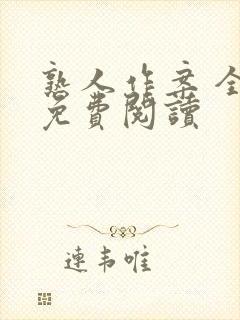 熟人作案全
免費閱讀
連韦唯